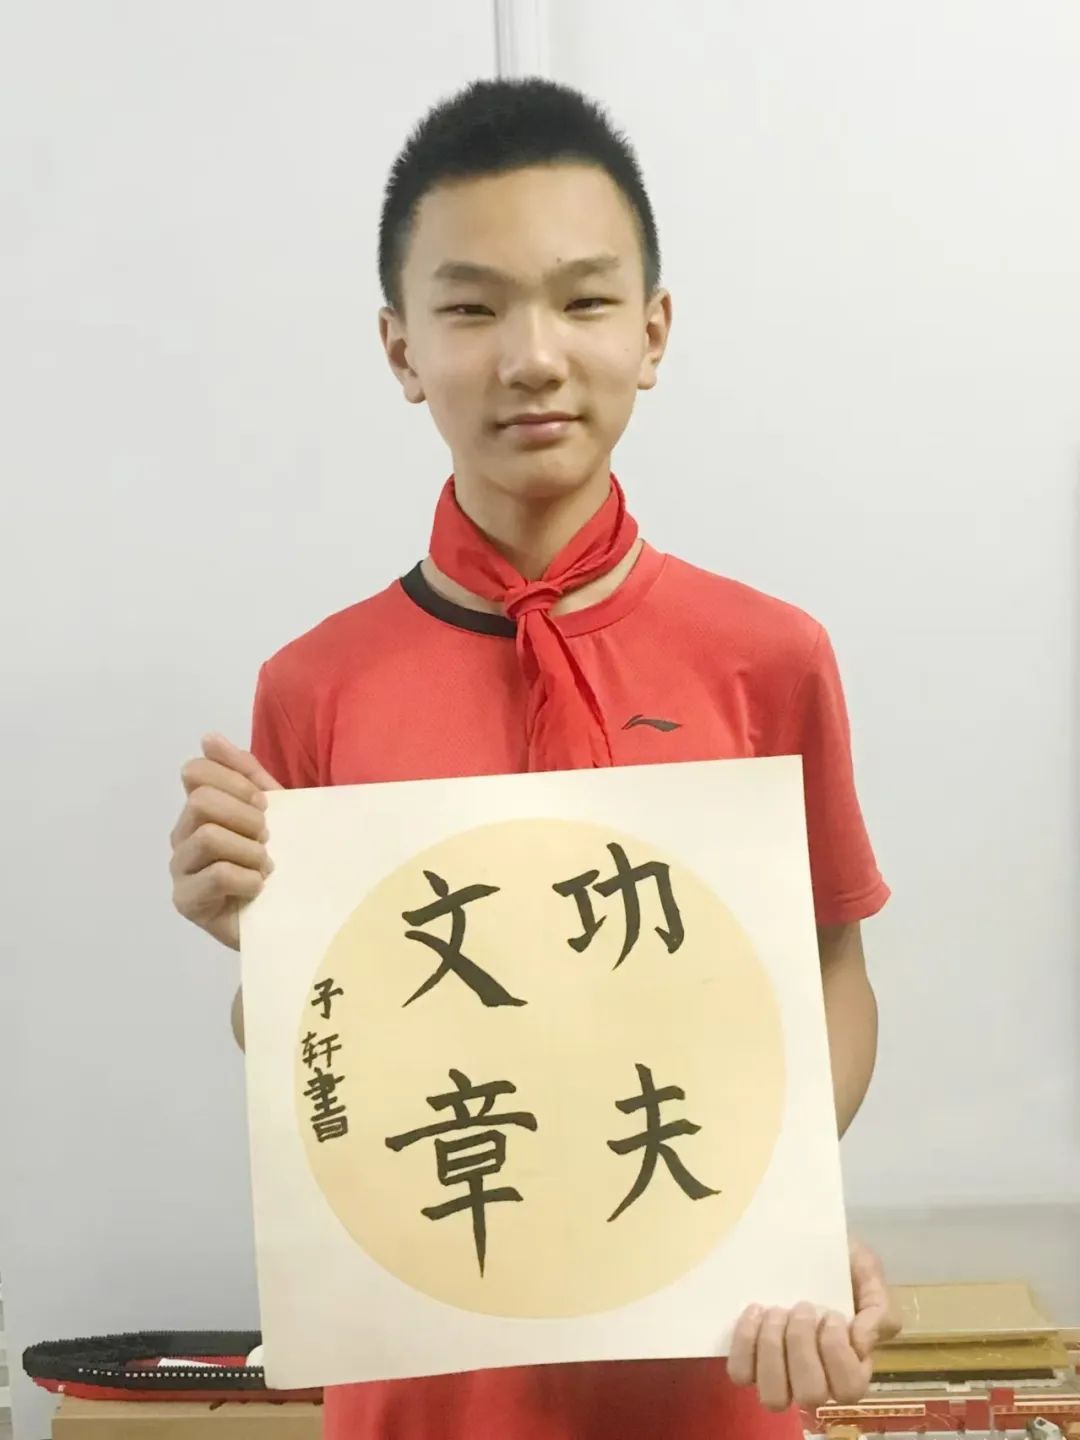 功夫
文章
子轩書